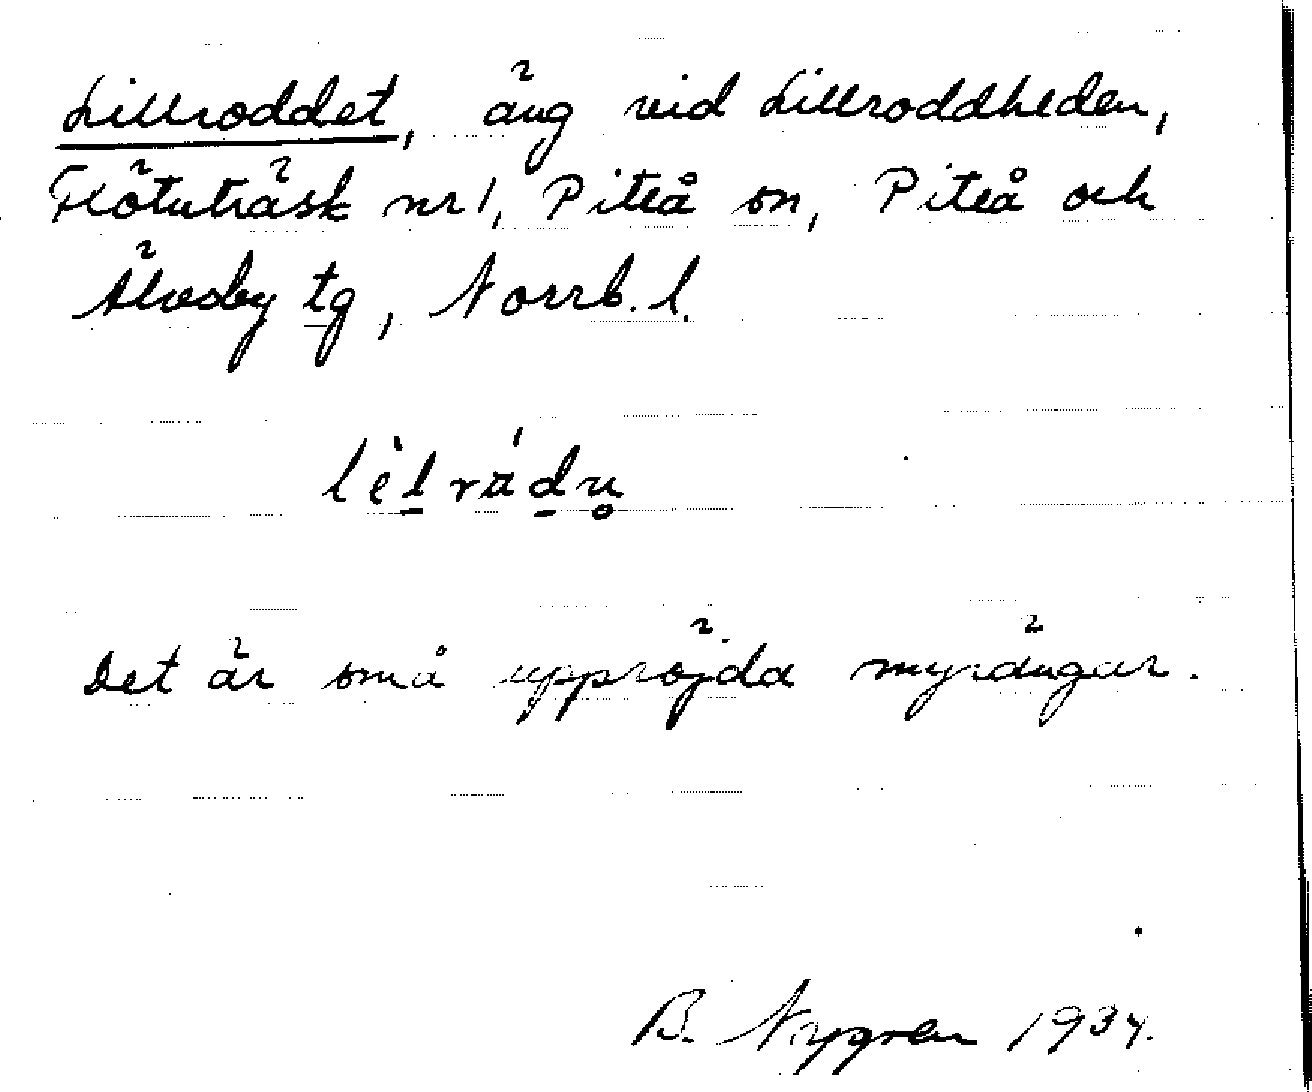 Lillroddet, äng vid Lillroddheden,
Flötuträsk nr 1, Piteå sn, Piteå och
Älvsby tg, Norrb. l.
lèl̠rád̠n̥
Det är små uppröjda myrängar.
B. Nygren 1934.